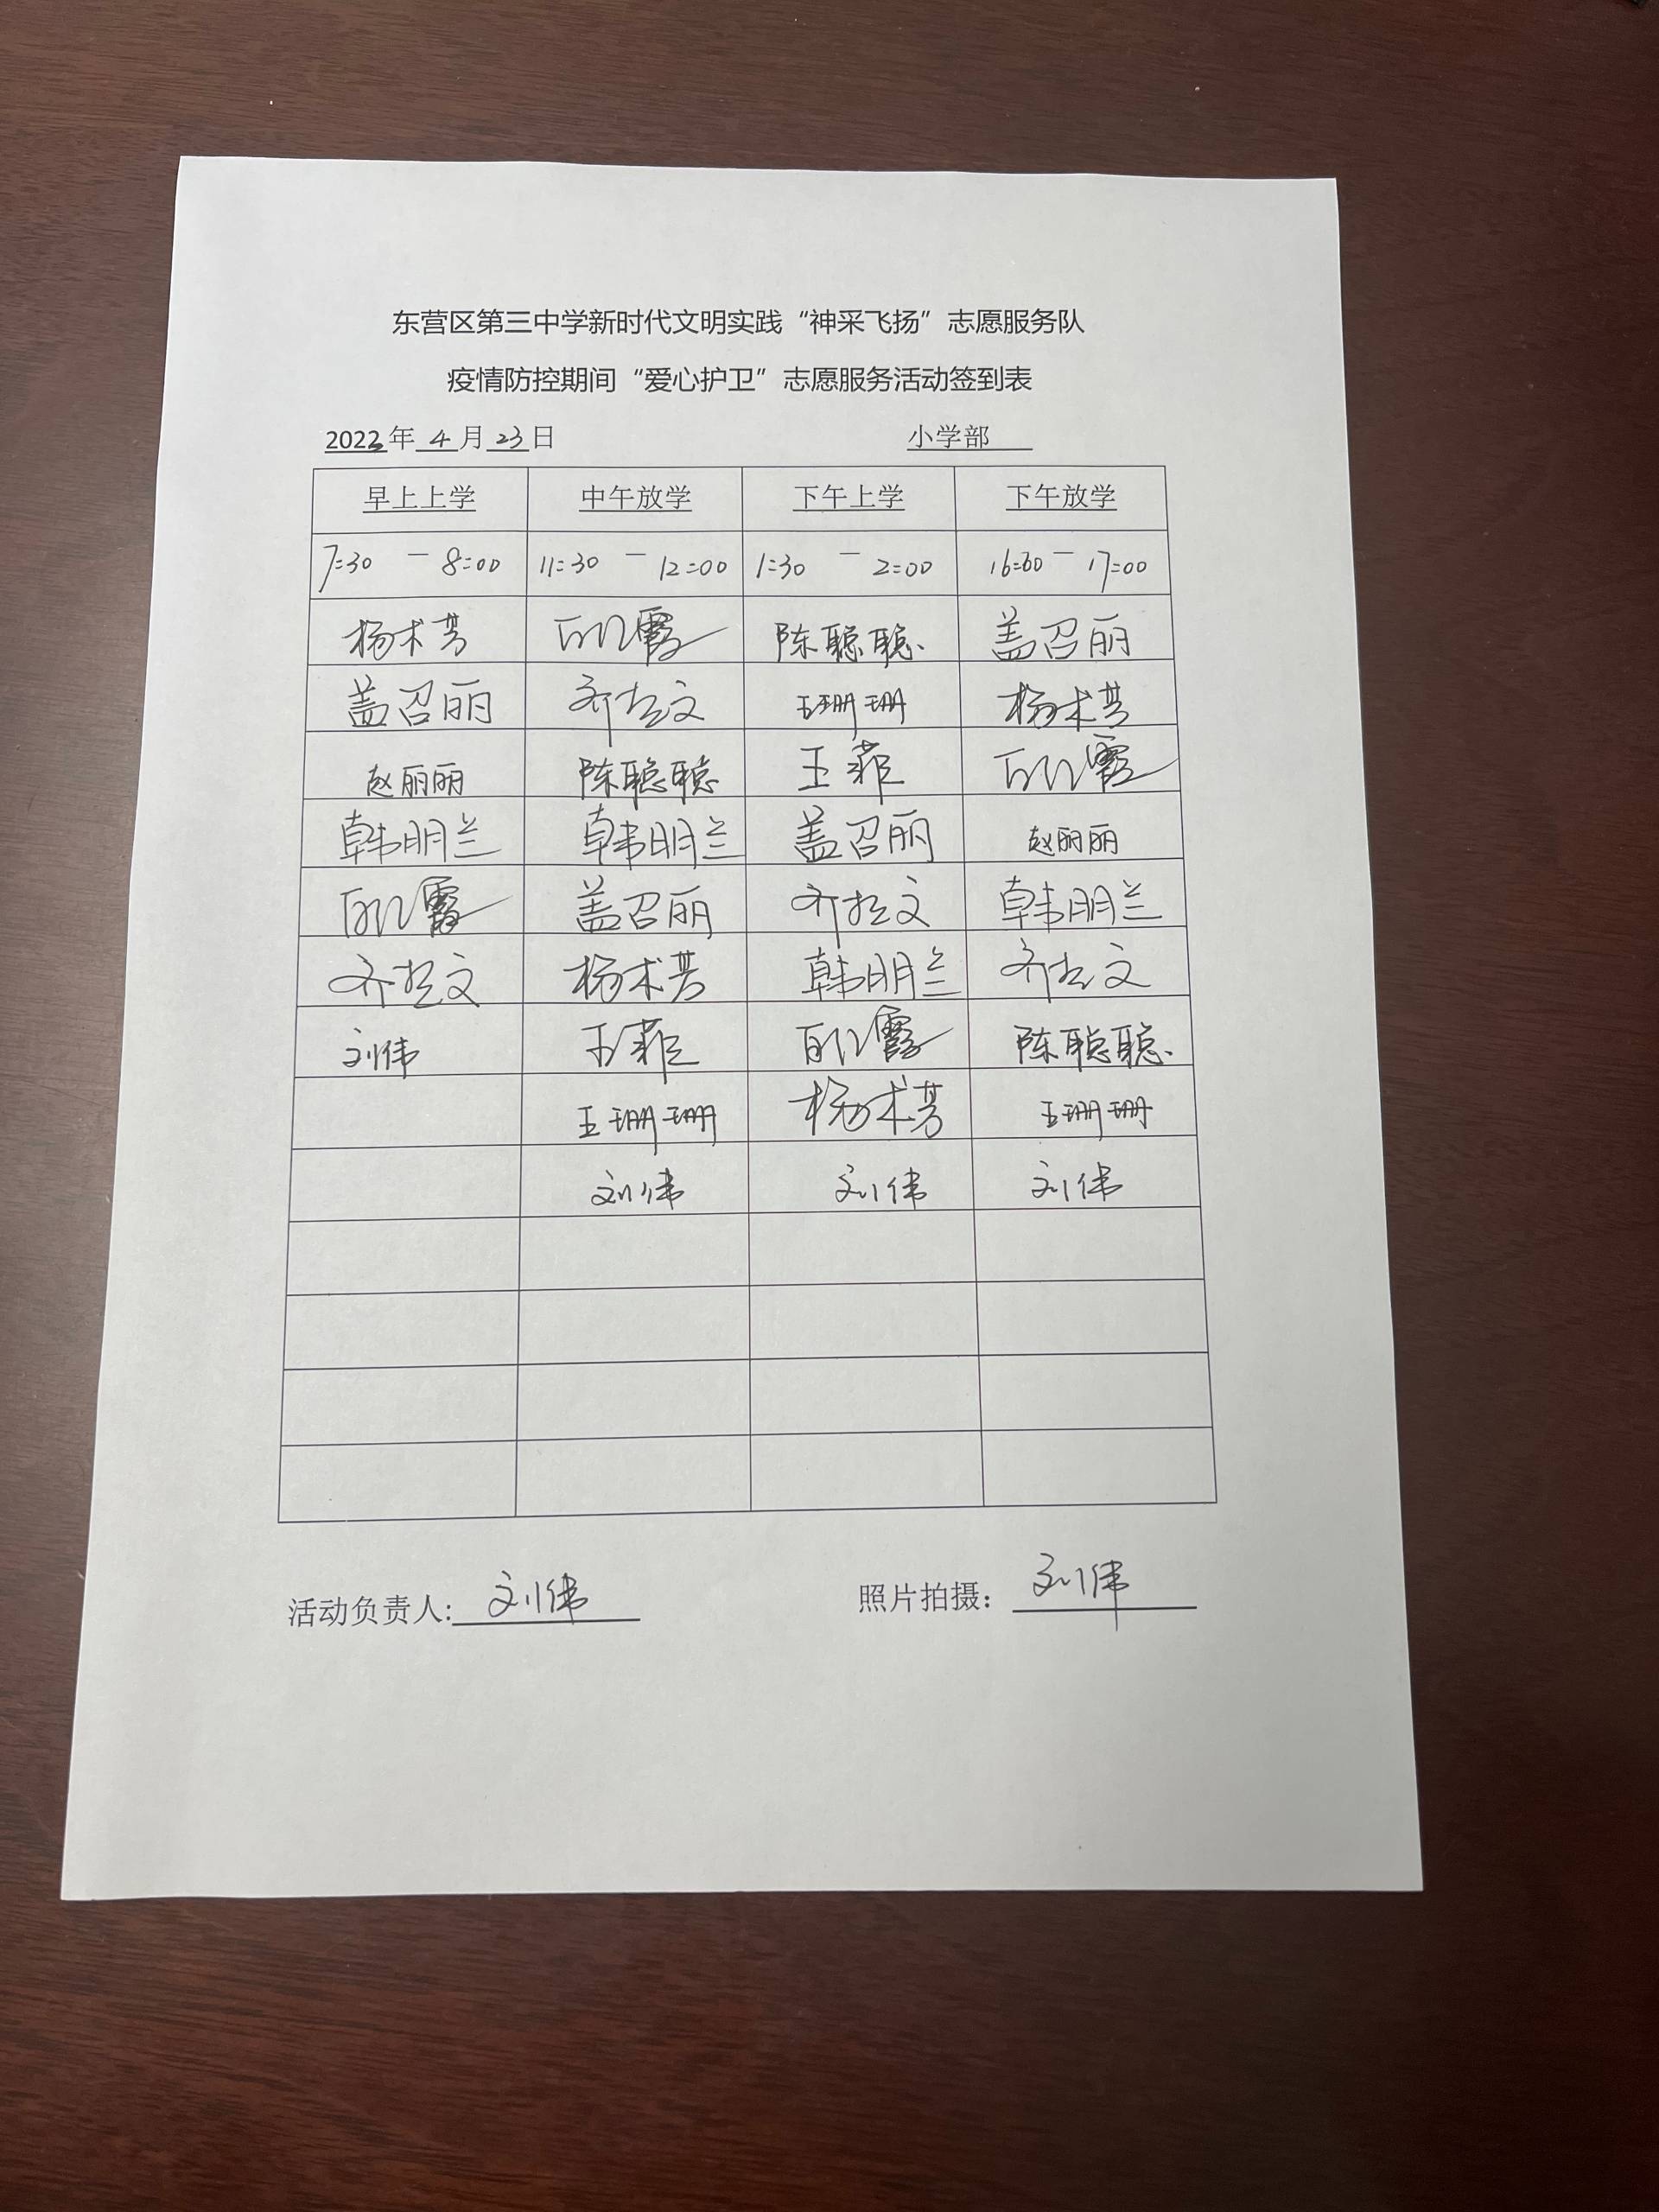 东营区第三中学新时代文明实践“神采飞扬”志愿服务队
疫情防控期间“爱心护卫”志愿服务活动签到表
2022年 4 月 23 日 小学部
早上上学 中午放学 下午上学 下午放学
7:30 — 8:00 11:30 — 12:00 1:30 — 2:00 16:30 — 17:00
杨术芳 霞 陈聪聪 盖召丽
盖召丽 齐文 王珊珊 杨术芳
赵丽丽 陈聪聪 王菲 霞
韩明兰 韩明兰 盖召丽 赵丽丽
霞 盖召丽 齐文 韩明兰
齐文 杨术芳 韩明兰 齐文
刘伟 王菲 霞 陈聪聪
王珊珊 杨术芳 王珊珊
刘伟 刘伟 刘伟
活动负责人: 刘伟 照片拍摄: 刘伟